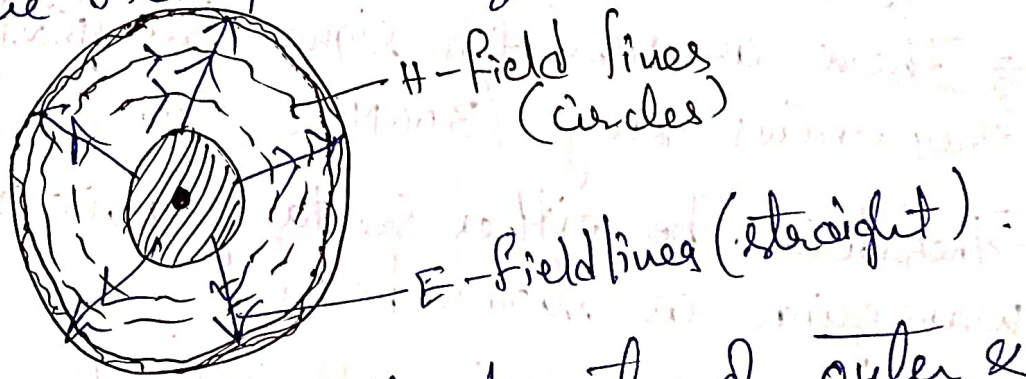 H-field lines
(circles)
E-field lines (straight).
outer &